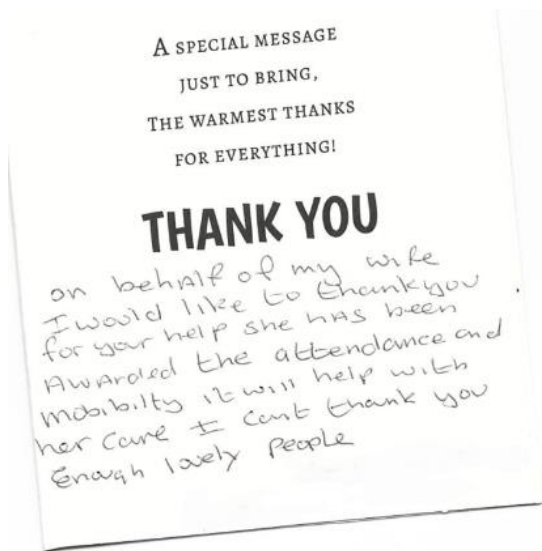 A SPECIAL MESSAGE
JUST TO BRING,
THE WARMEST THANKS
FOR EVERYTHING!
THANK YOU
on behalf of my wife
I would like to thankyou
for your help she has been
Awarded the attendance and
mobibilty it will help with
her care I cant thank you
Enough lovely people